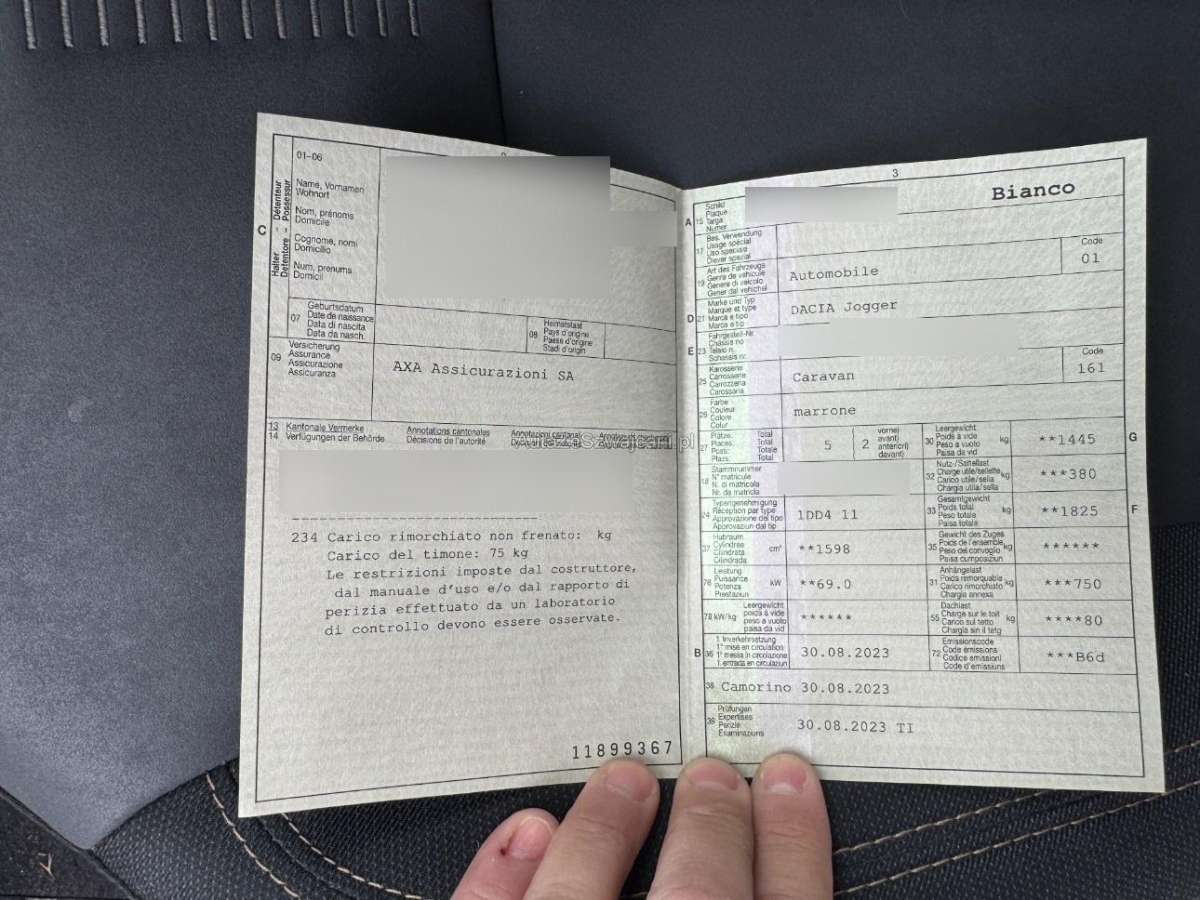 01-06
Halter - Détenteur
Detentore - Possessur
C
Name, Vornamen
Wohnort
Nom, prénoms
Domicile
Cognome, nomi
Domicilio
Num, prenums
Domicil
07
Geburtsdatum
Date de naissance
Data di nascita
Data da nasch.
08
Heimatstaat
Pays d'origine
Paese d'origine
Stadi d'origin
09
Versicherung
Assurance
Assicurazione
Assicuranza
AXA Assicurazioni SA
13 Kantonale Vermerke
14 Verfügungen der Behörde
Annotations cantonales
Décisions de l'autorité
Annotazioni cantonali
234 Carico rimorchiato non frenato: kg
Carico del timone: 75 kg
Le restrizioni imposte dal costruttore,
dal manuale d'uso e/o dal rapporto di
perizia effettuato da un laboratorio
di controllo devono essere osservate.
11899367
3
Bianco
A 15
Schild
Plaque
Targa
Numer
17
Bes. Verwendung
Usage spécial
Uso speciale
Diever spezial
Code
01
19
Art des Fahrzeugs
Genre de véhicule
Genere di veicolo
Gener dal vehichel
Automobile
D 21
Marke und Typ
Marque et type
Marca e tipo
Marca e tip
DACIA Jogger
E 23
Fahrgestell-Nr.
Châssis no
Telaio n.
Schassis nr.
25
Karosserie
Carrosserie
Carrozzeria
Carossaria
Caravan
Code
161
26
Farbe
Couleur
Colore
Colur
marrone
27
Plätze: Total
Places: Total
Posti: Totale
Plazs: Total
5
2
vorne)
avant)
anteriori)
davant)
30
Leergewicht
Poids à vide
Peso a vuoto
Paisa da vid
kg
**1445
G
18
Stammnummer
N° matricule
N. di matricola
Nr. da matricla
32
Nutz-/Sattellast
Charge utile/sellette
Carico utile/sella
Chargia utila/sella
kg
***380
24
Typengenehmigung
Réception par type
Approvazione del tipo
Approvaziun dal tip
1DD4 11
33
Gesamtgewicht
Poids total
Peso totale
Paisa totala
kg
**1825
F
37
Hubraum
Cylindrée
Cilindrata
Cilindrada
cm³
**1598
35
Gewicht des Zuges
Poids de l'ensemble
Peso del convoglio
Paisa cumposiziun
kg
******
76
Leistung
Puissance
Potenza
Prestaziun
kW
**69.0
31
Anhängelast
Poids remorquable
Carico rimorchiato
Chargia annexa
kg
***750
78 kW/kg
Leergewicht
poids à vide
peso a vuoto
paisa da vid
******
55
Dachlast
Charge sur le toit
Carico sul tetto
Chargia sin il tetg
kg
****80
B 36
1. Inverkehrsetzung
1re mise en circulation
1a messa in circolazione
1. entrada en circulaziun
30.08.2023
72
Emissionscode
Code émissions
Codice emissioni
Code d'emissiuns
***B6d
38 Camorino 30.08.2023
39
Prüfungen
Expertises
Perizie
Examinaziuns
30.08.2023 TI